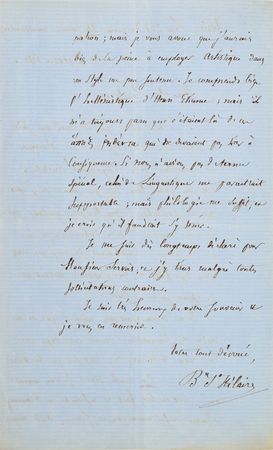 nation ; mais je vous avoue que j'aurais
bien de la peine à employer Artistique dans
un style un peu soutenu. Je comprends trop
l' d'Henri Etienne ; mais il
m'a toujours paru que c'étaient là de
qui ne devaient pas
Si nous n'avions pas de terme
spécial, celui de Linguistique me paraîtrait
supportable ; mais philologie me suffit, et
je crois qu'il faudrait s'y tenir.
Je me suis dès longtemps déclaré pour
Monsieur Servois, et j'y tiens malgré toutes
contraires.
Je suis très heureux de votre souvenir et
je vous en remercie.
Votre tout dévoué,
By St Hilaire